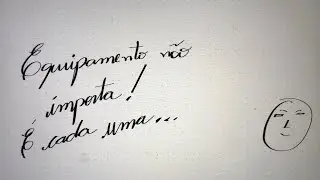 Equipamento não
importa!
É cada uma...